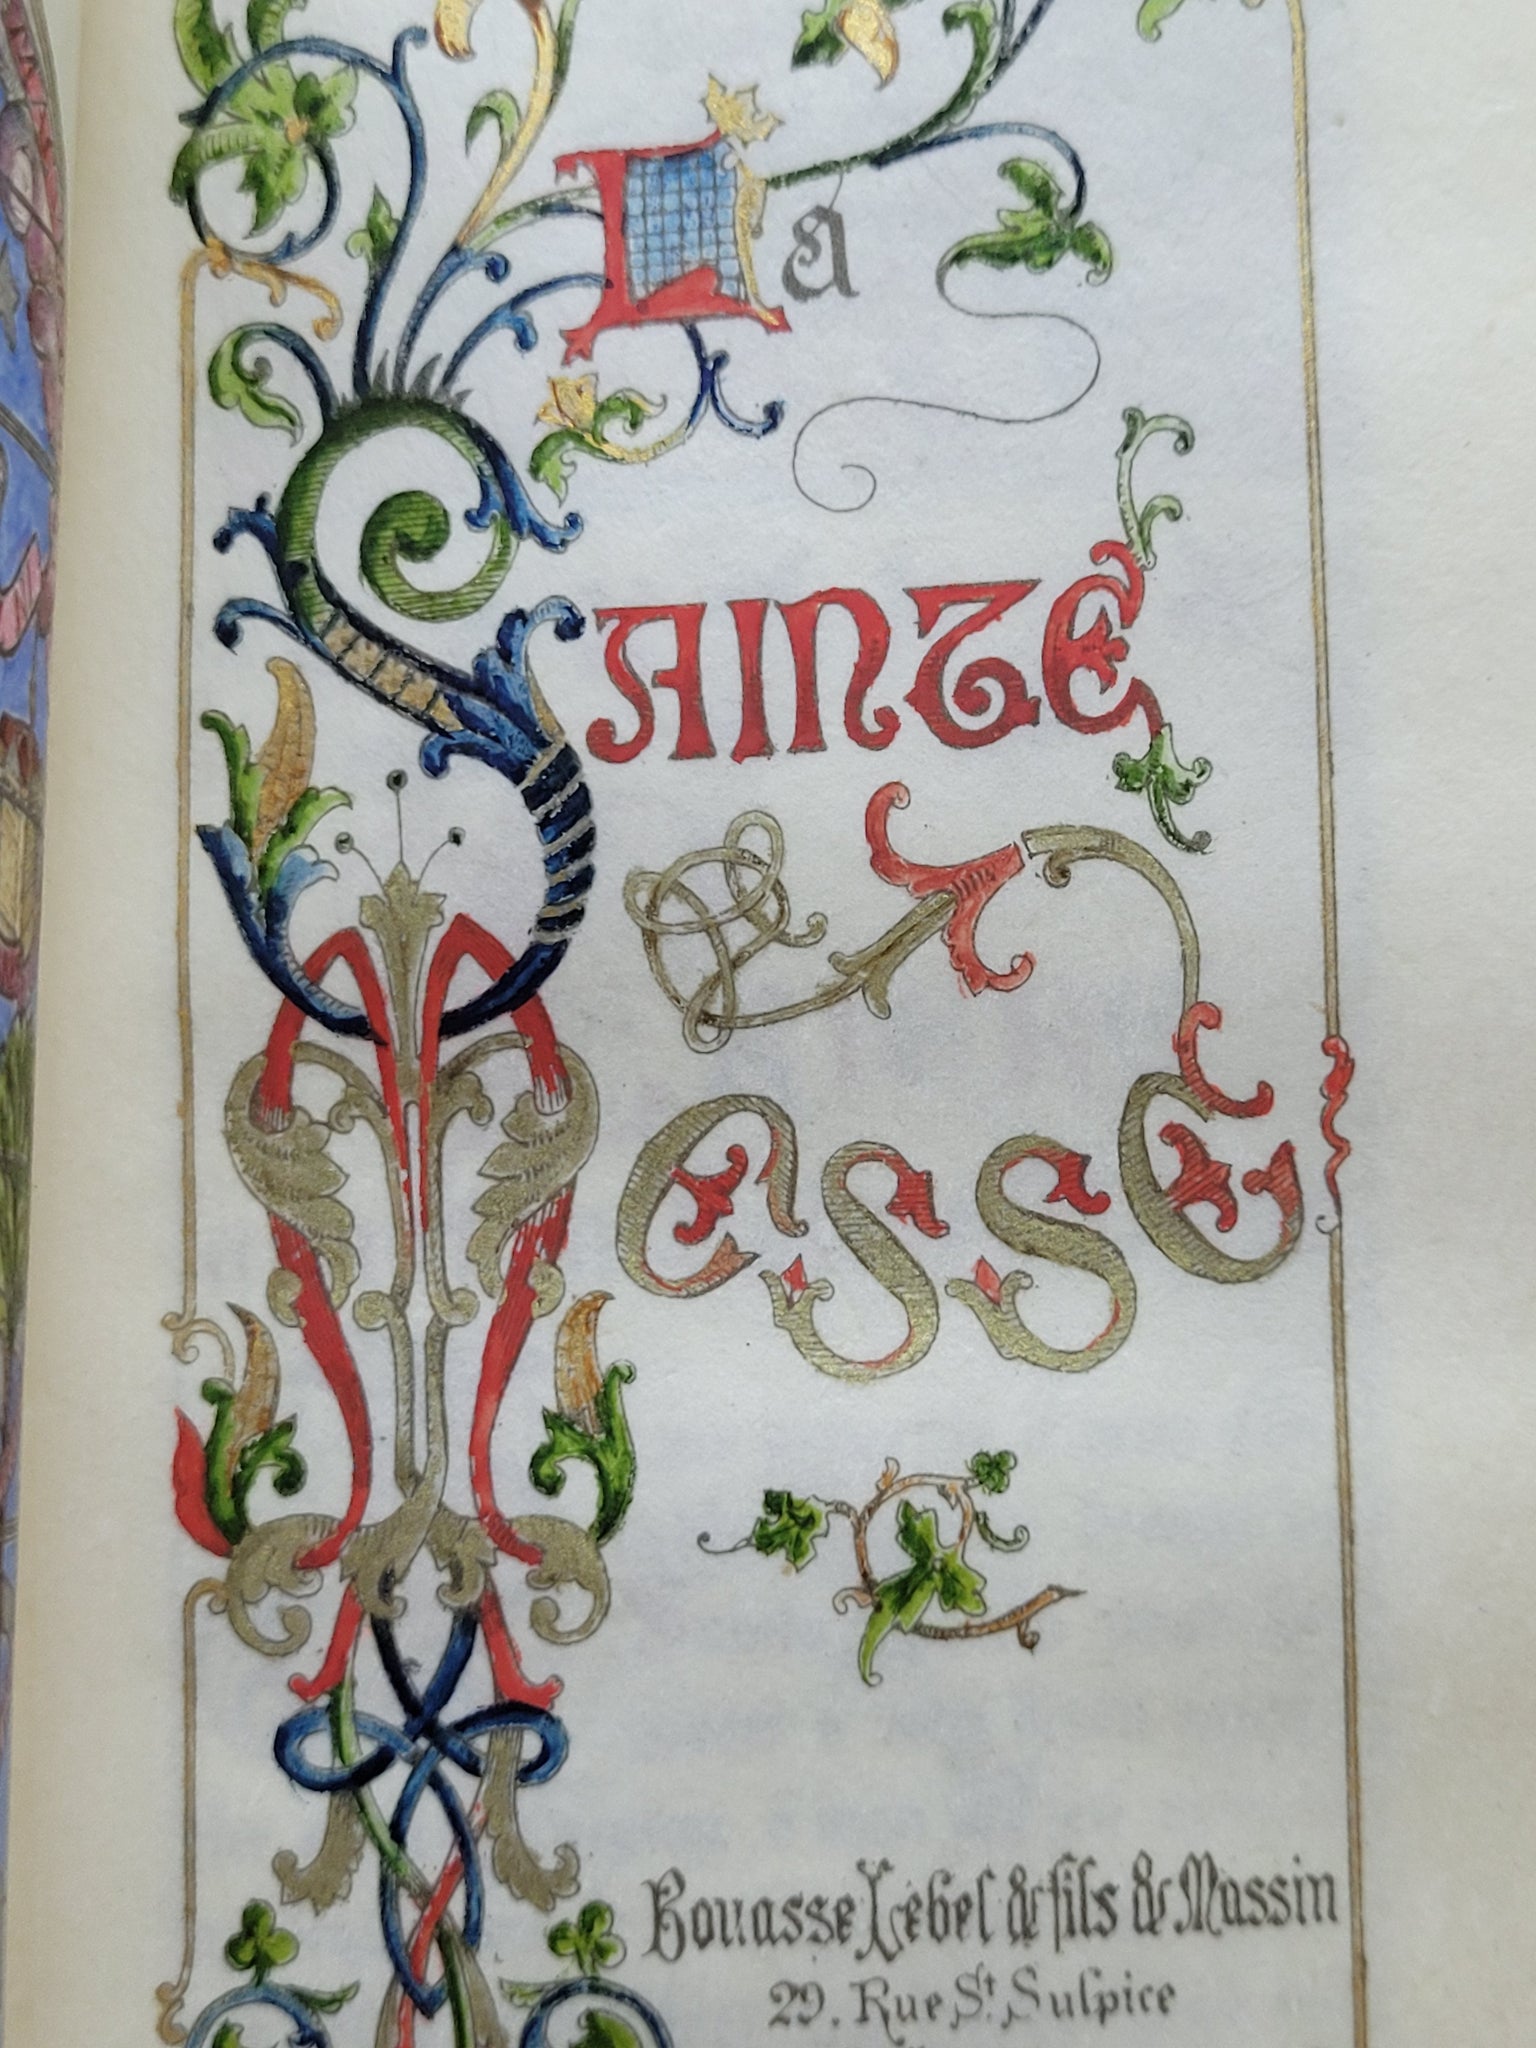 La
SAINTE
MESSE
Bouasse Lebel & fils & Massin
29. Rue St. Sulpice